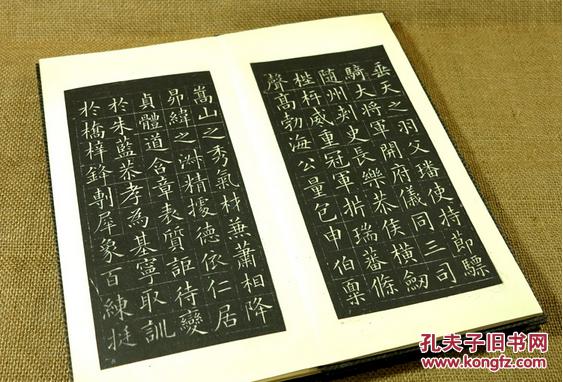 垂天之羽父璠使持節驃
騎大將軍開府儀同三司
随州刾史長樂恭侯橫劒
梐枑威重冠軍析瑞蕃條
聲髙勃海公量包申伯稟
嵩山之秀氣材蒹蕭相降
昴緯之淑精據德依仁居
貞體道含章表質詎待變
於朱藍恭孝為基寧取訓
於橋梓鋒剸犀象百練挺
孔夫子旧书网
www.kongfz.com